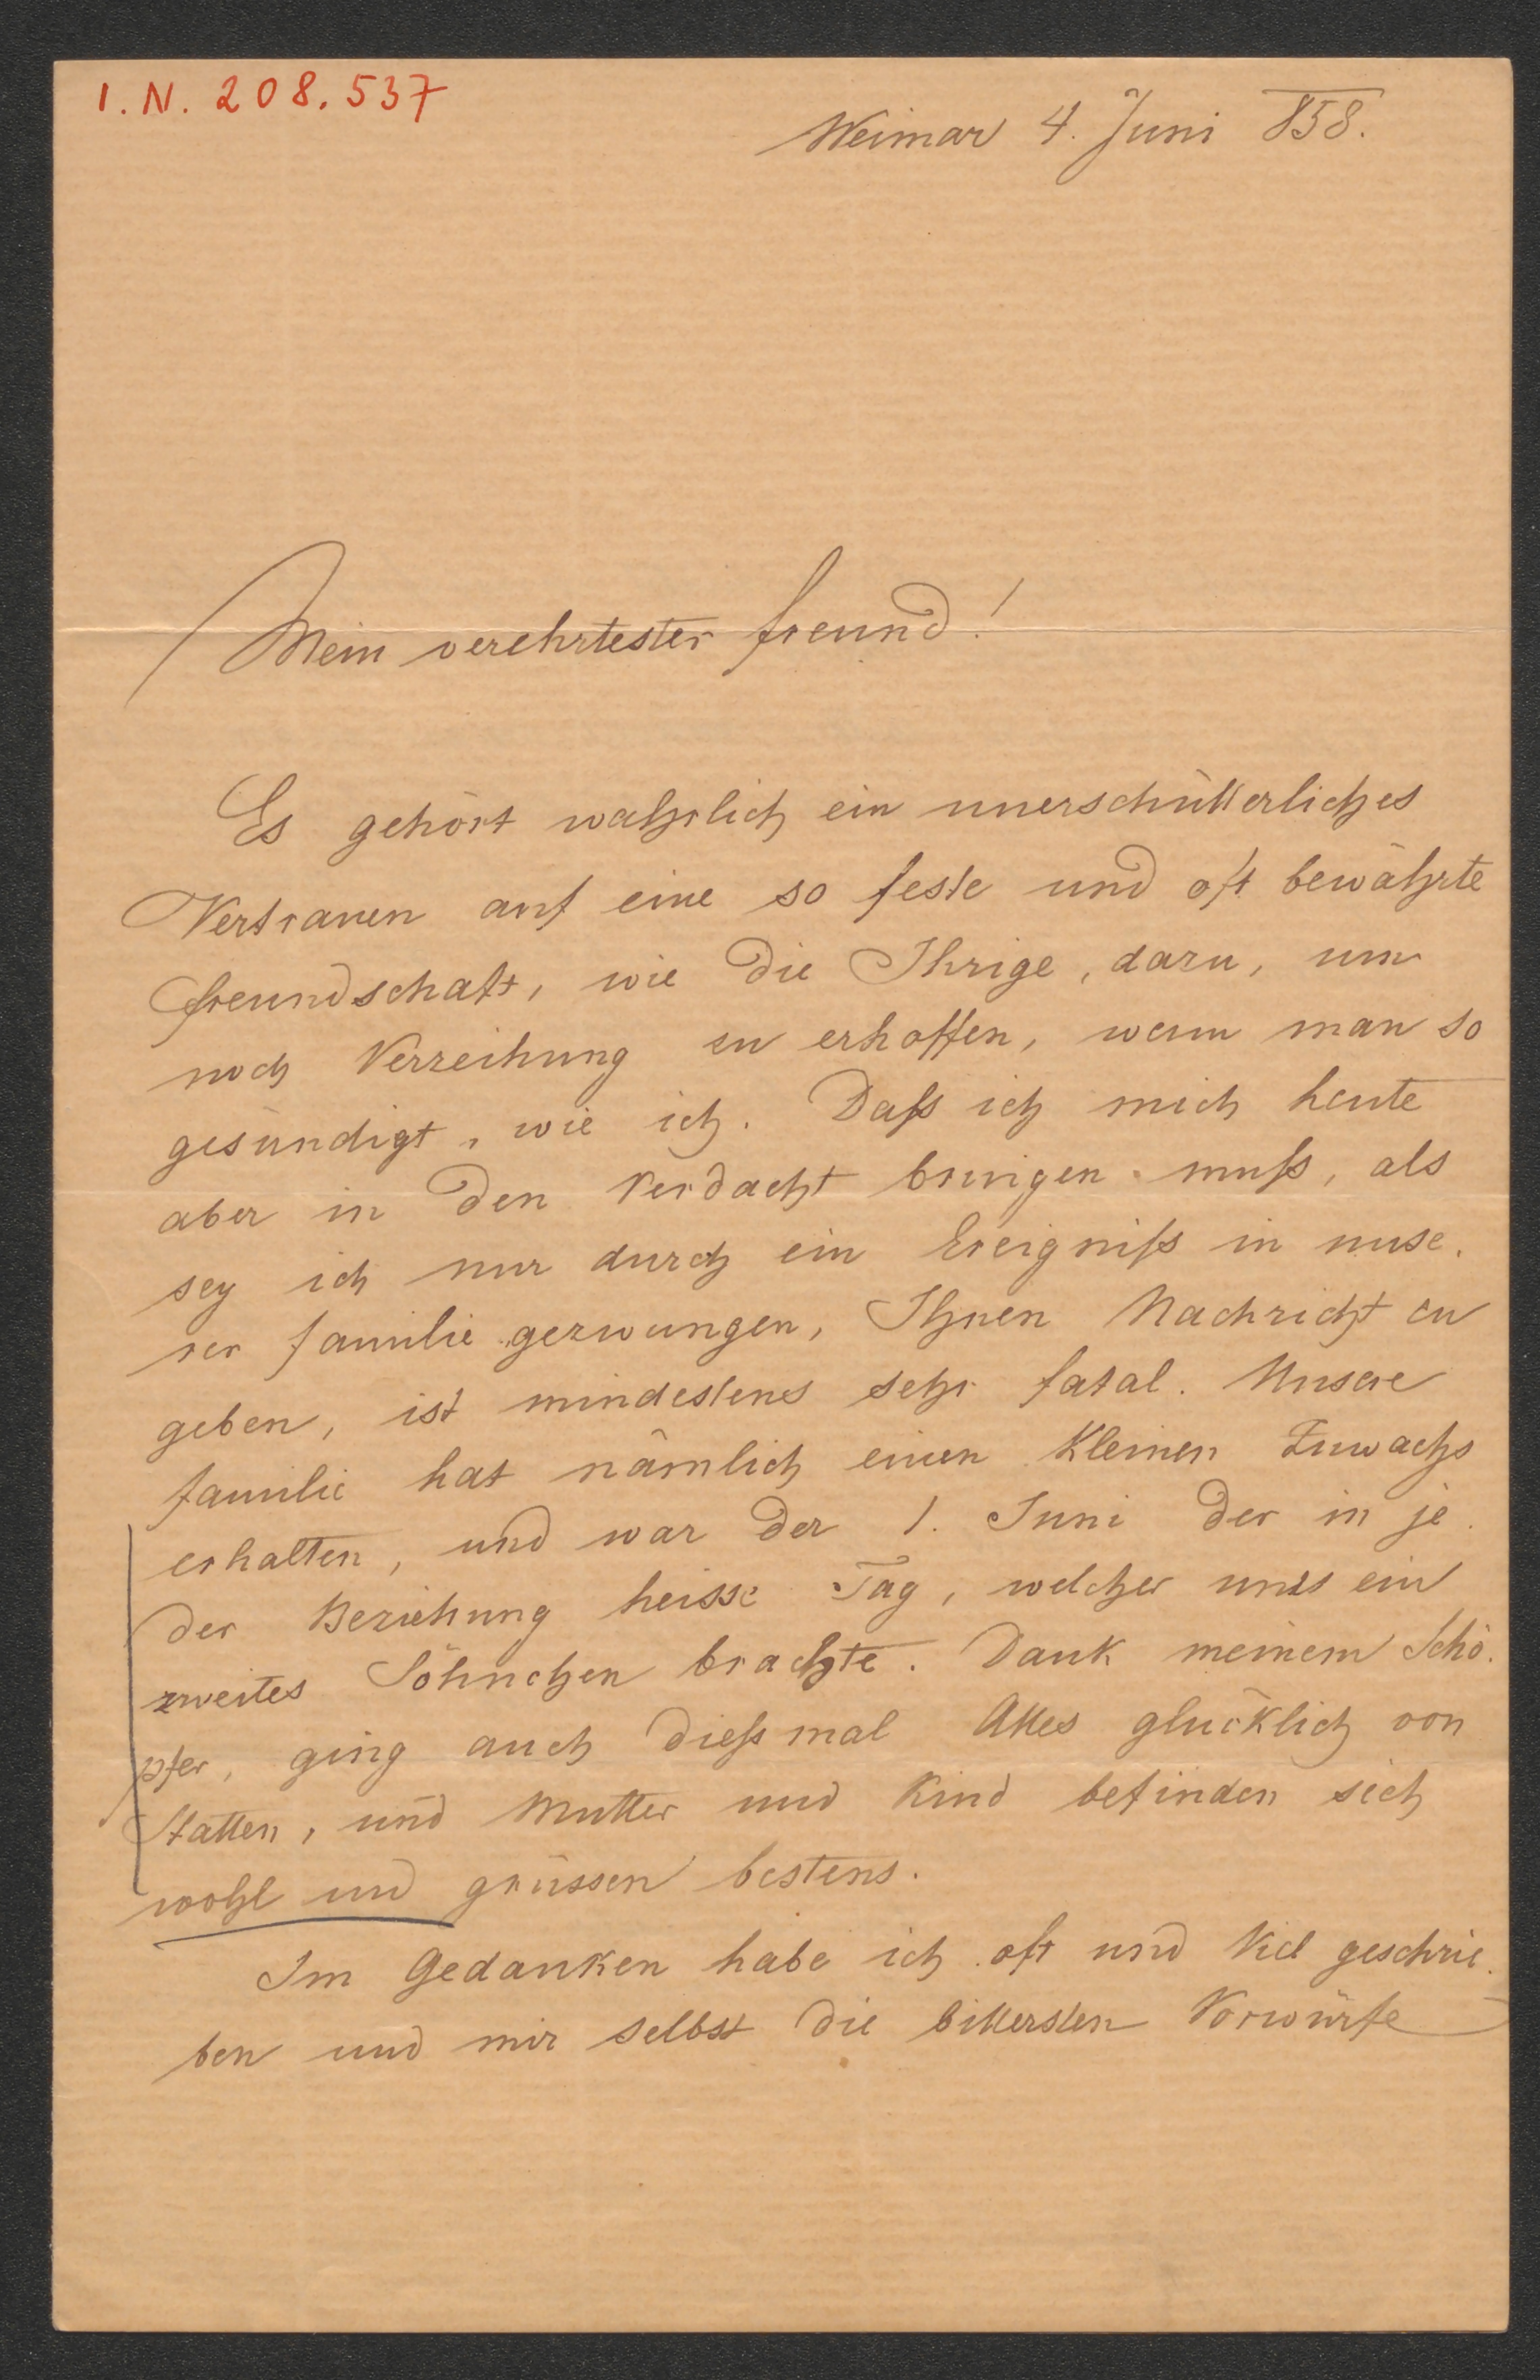 I.N. 208.537
Weimar 4. Juni 858.
Mein verehrtester Freund!
Es gehört wahrlich ein unerschütterliches
Vertrauen auf eine so feste und oft bewährte
Freundschaft, wie die Ihrige, dazu, um
noch Verzeihung zu erhoffen, wenn man so
gesündigt, wie ich. Daß ich mich heute
aber in den Verdacht bringen muß, als
sey ich nur durch ein Ereigniß in unse-
rer Familie gezwungen, Ihnen Nachricht zu
geben, ist mindestens sehr fatal. Unsere
Familie hat nämlich einen kleinen Zuwachs
erhalten, und war der 1. Juni der in je-
der Beziehung heisse Tag, welcher uns ein
zweites Söhnchen brachte. Dank meinem Schö-
pfer, ging auch dießmal Alles glücklich von
Statten, und Mutter und Kind befinden sich
wohl und grüssen bestens.
Im Gedanken habe ich oft und viel geschrie-
ben und mir selbst die bittersten Vorwürfe